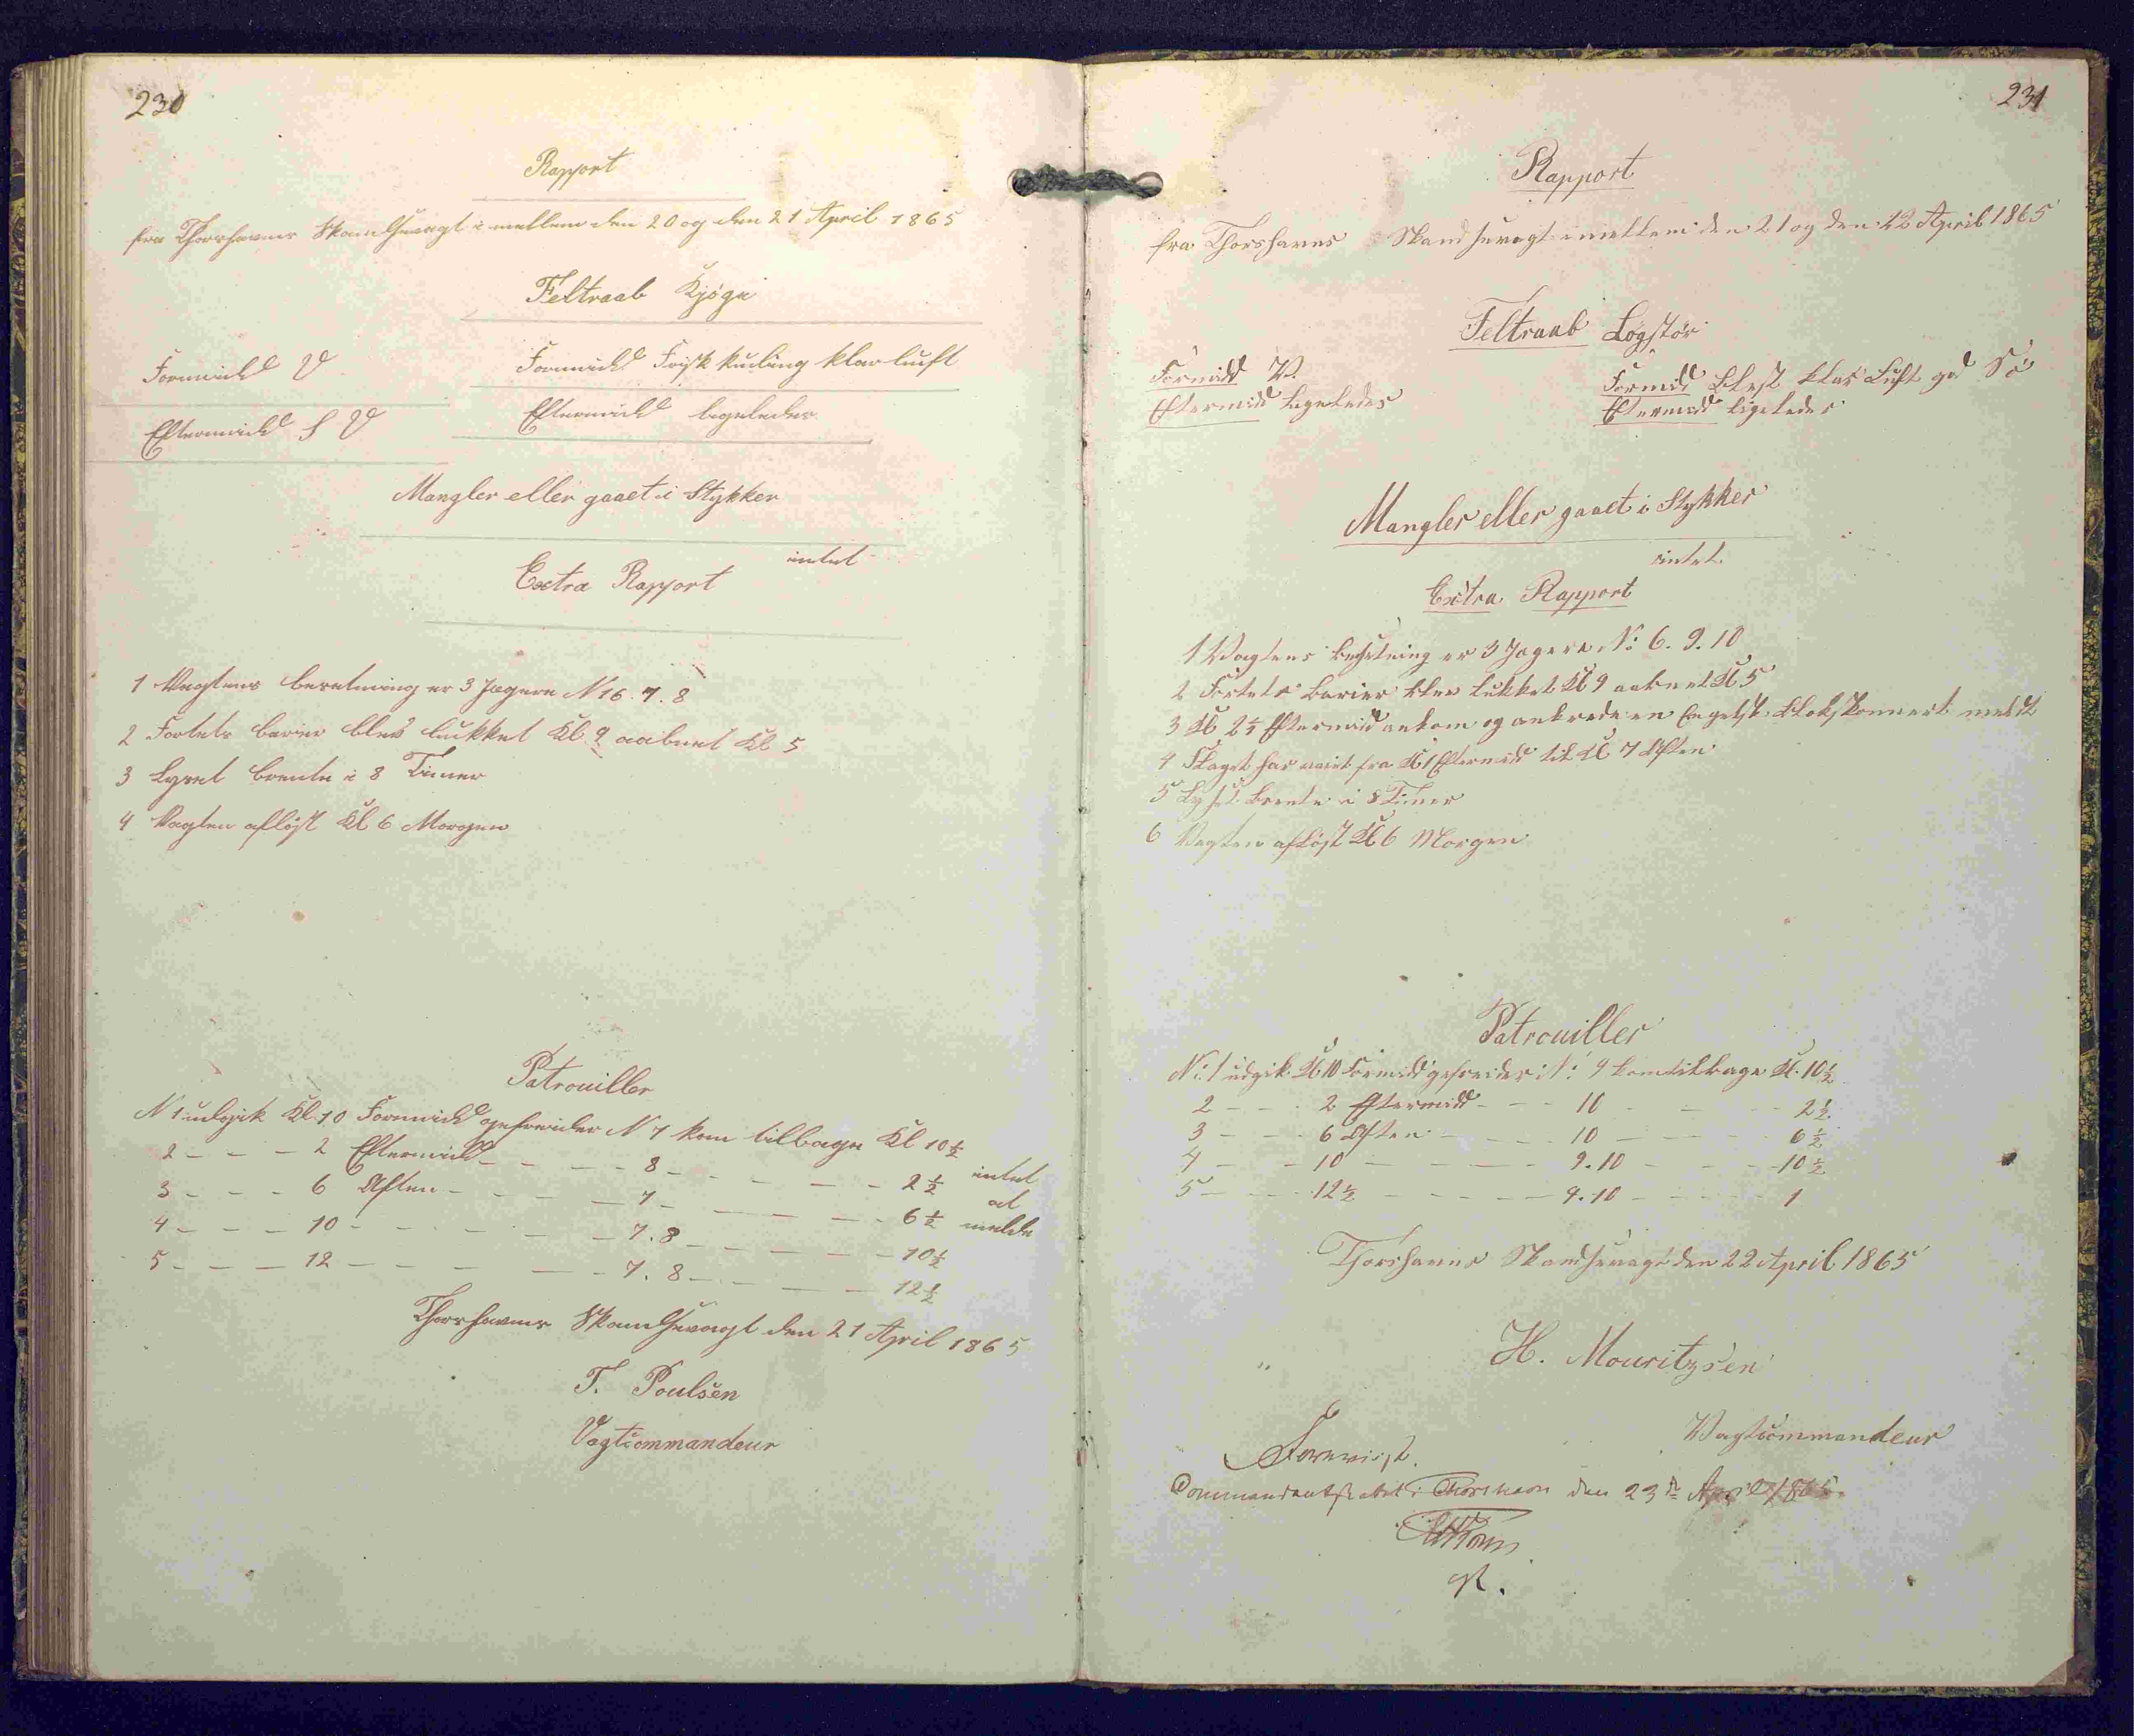 230
Rapport
fra Thorshavns Skandsevagt i mellem den 20 og den 21 April 1865
Feltraab Kjøge
Formidd V
Formidd Frisk kuling klar luft
Eftermidd S V
Eftermidd ligeledes
Mangler eller gaaet i Stykker
intet
Extra Rapport
1 Vagtens besetning er 3 Jægere N 16. 7. 8
2 Fortets barier blev lukket Kl 9 aabnet Kl 5
3 Lyset brente i 8 Timer
4 Vagten afløst Kl 6 Morgen
Patrouiller
N 1 udgik Kl 10 Formidd gefreider N 7 kom tilbage Kl 10½
2 - - - 2 Eftermidd - - - - 8 - - - - - 2½ intet
3 - - - 6 Aften - - - - 7 - - - - - 6½ at
4 - - - 10 - - - - - 7. 8 - - - - - 10½ melde
5 - - - 12 - - - - - 7. 8 - - - - 12½
Thorshavns Skandsevagt den 21 April 1865
T. Poulsen
Vagtcommandeur
231
Rapport
fra Thorshavns Skandsevagt imellem den 21 og den 22 April 1865
Feltraab Løgstør
Formidd V.
Formidd blest klar Luft god Sø
Eftermidd ligeledes
Eftermidd ligeledes
Mangler eller gaaet i Stykker
intet.
Extra Rapport
1 Vagtens besetning er 3 Jægere No: 6. 9. 10
2 Fortets Barier blev lukket Kl 9 aabnet Kl 5
3 Kl 2½ Eftermid ankom og ankrede en Engelsk Slobskonnert
4 Flaget har vaiet fra Kl 1 Eftermidd til Kl 7 Aften
5 Lyset brente i 8 Timer
6 Vagten afløst Kl 6 Morgen
Patrouiller
No: 1 udgik Kl 10 Formidd gefreider No: 9 kom tilbage Kl. 10½
2 - - - 2 Eftermidd - - - 10 - - - - 2½
3 - - - 6 Aften - - - - 10 - - - - 6½
4 - - - 10 - - - - 9. 10 - - - - 10½
5 - - - 12½ - - - - 9. 10 - - - - 1
Thorshavns Skandsevagt den 22 April 1865
H. Mouritzsen
Vagtcommandeur
Foreviist.
Commandantskabet i Thorshavn den 23de April 1865.